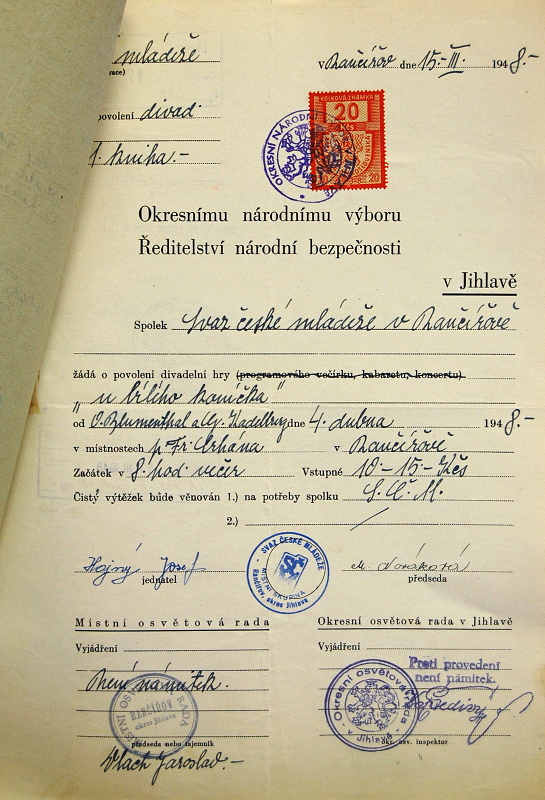 mládeže
v Rančířově dne 15.-III. 1948.-
race)
povolení divad.
1. kniha.-
KOLKOVÁ ZNÁMKA
20
Kčs
OKRESNÍ NÁRODNÍ JIHLAVĚ
Okresnímu národnímu výboru
Ředitelství národní bezpečnosti
v Jihlavě
Spolek Svaz české mládeže v Rančířově
žádá o povolení divadelní hry (programového večírku, kabaretu, koncertu)
„u bílého koníčka"
od O. Blumenthal a G. Kadelburg dne 4. dubna 1948.-
v místnostech p. Fr. Urbána v Rančířově
Začátek v 8. hod. večer Vstupné 10-15.- Kčs
Čistý výtěžek bude věnován 1.) na potřeby spolku S.Č.M.
2.)
Hojný Josef M. Nováková
jednatel předseda
SVAZ ČESKÉ MLÁDEŽE
MÍSTNÍ SKUPINA
Rančířov, okres Jihlava
Místní osvětová rada Okresní osvětová rada v Jihlavě
Vyjádření Vyjádření
Proti provedení
není námitek.
Není námitek.
MÍSTNÍ OSVĚTOVÁ RADA
RANČÍŘOV
okres Jihlava
Okresní osvětová rada
v Jihlavě
předseda nebo tajemník okr. osv. inspektor
Vlach Jaroslav.-